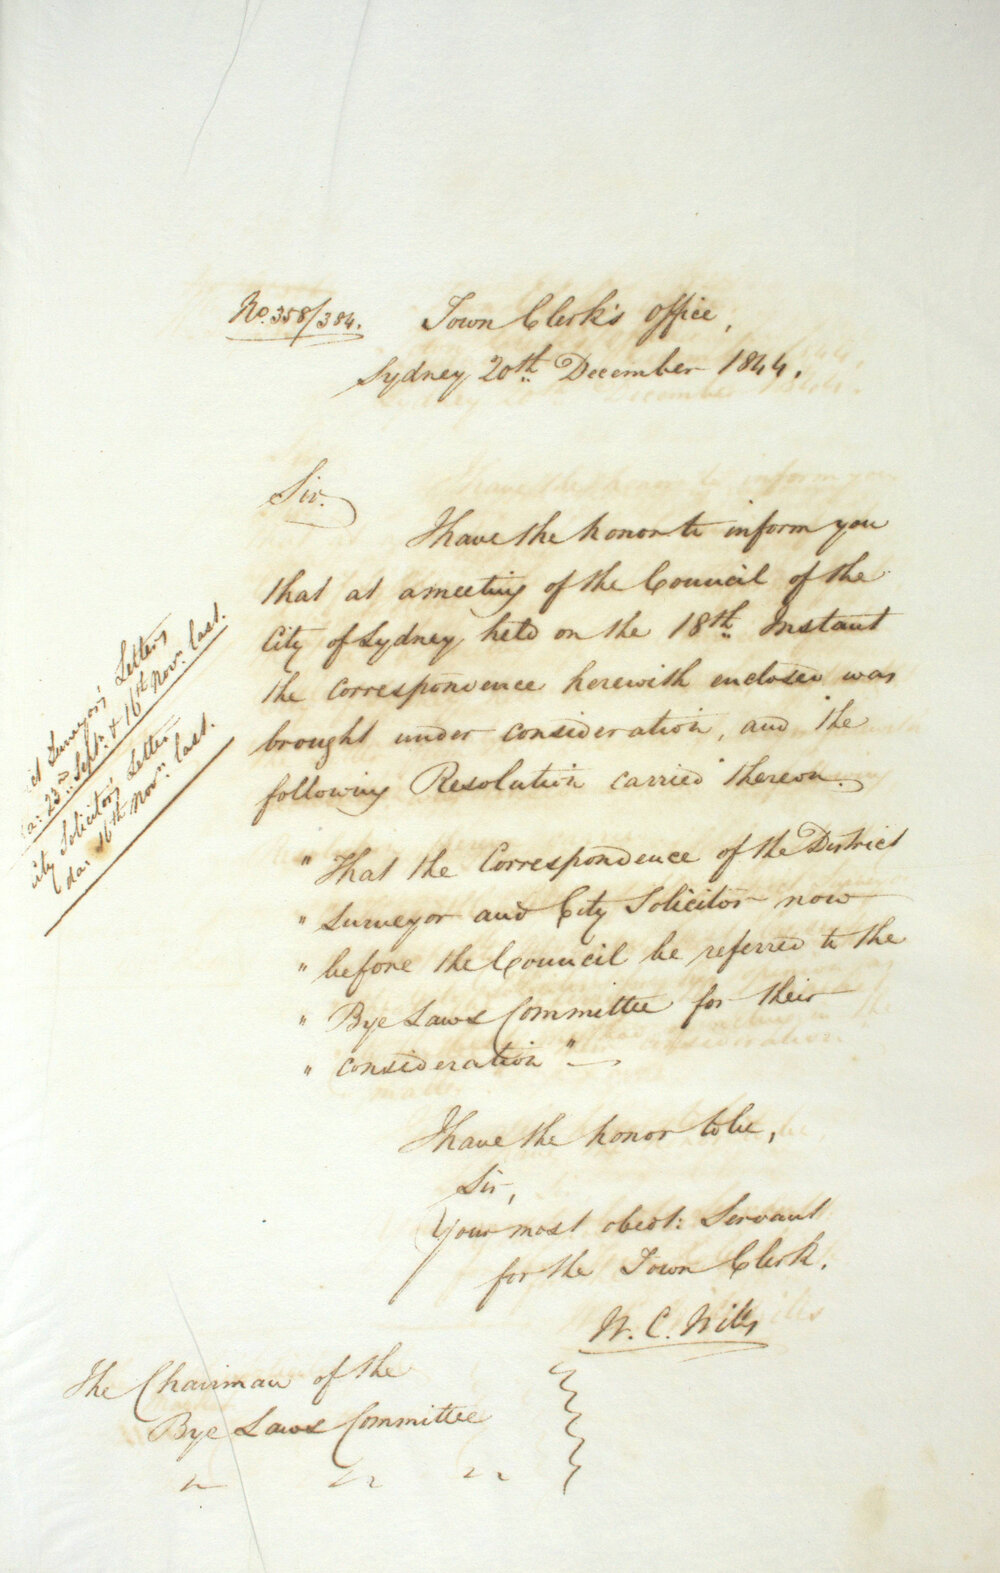 No. 358/384.
Town Clerk's Office,
Sydney 20th December 1844.
Sir.
I have the honor to inform you
that at a meeting of the Council of the
City of Sydney, held on the 18th Instant
the correspondence herewith enclosed was
brought under consideration, and the
following Resolution carried thereon.
Surveyor's Letters
23rd Sept. & 16th Novr. last.
City Solicitor's Letter
da: 16th Novr. last.
" That the Correspondence of the District
" Surveyor and City Solicitor now
" before the Council be referred to the
" Bye Laws Committee for their
" consideration "
I have the honor to be,
Sir,
Your most obedt: Servant
for the Town Clerk.
W. C. Wills
The Chairman of the
Bye Laws Committee